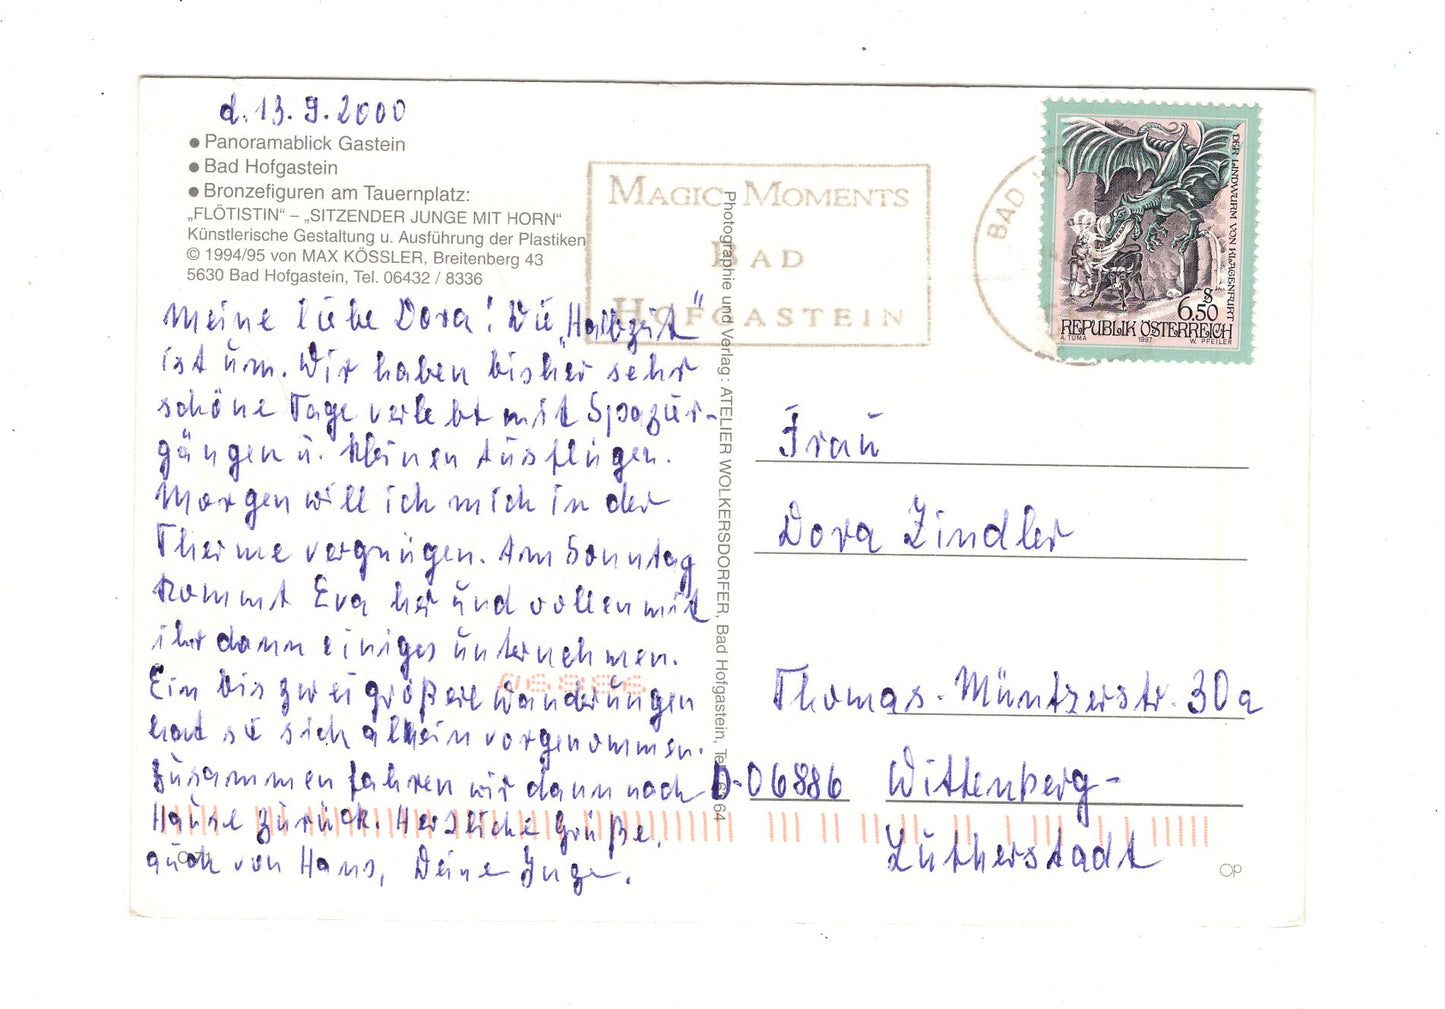 d. 13.9.2000
● Panoramablick Gastein
● Bad Hofgastein
● Bronzefiguren am Tauernplatz:
„FLÖTISTIN“ – „SITZENDER JUNGE MIT HORN“
Künstlerische Gestaltung u. Ausführung der Plastiken
© 1994/95 von MAX KÖSSLER, Breitenberg 43
5630 Bad Hofgastein, Tel. 06432 / 8336
Meine liebe Dora! Die „Halbzeit“
ist um. Wir haben bisher sehr
schöne Tage verlebt mit Spazier-
gängen u. kleinen Ausflügen.
Morgen will ich mich in der
Therme vergnügen. Am Sonntag
kommt Eva her und wollen mit
ihr dann einiges unternehmen.
Ein bis zwei größere Wanderungen
hat sie sich allein vorgenommen.
Zusammen fahren wir dann nach
Hause zurück. Herzliche Grüße,
auch von Hans, Deine Inge.
MAGIC MOMENTS
BAD
HOFGASTEIN
Photographie und Verlag: ATELIER WOLKERSDORFER, Bad Hofgastein, 64
BAD
DER LINDWURM VON KLAGENFURT
S
6.50
REPUBLIK ÖSTERREICH
A. TUMA 1997 W. PFEILER
Frau
Dora Zindler
Thomas-Müntzerstr. 30a
D-06886 Wittenberg-
Lutherstadt
06886
OP